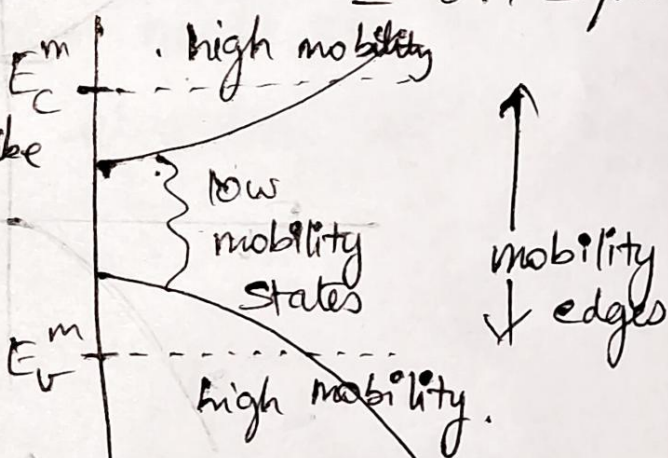 . high mobility
E_C^m
low
mobility
states
mobility
edges
E_v^m
high mobility.